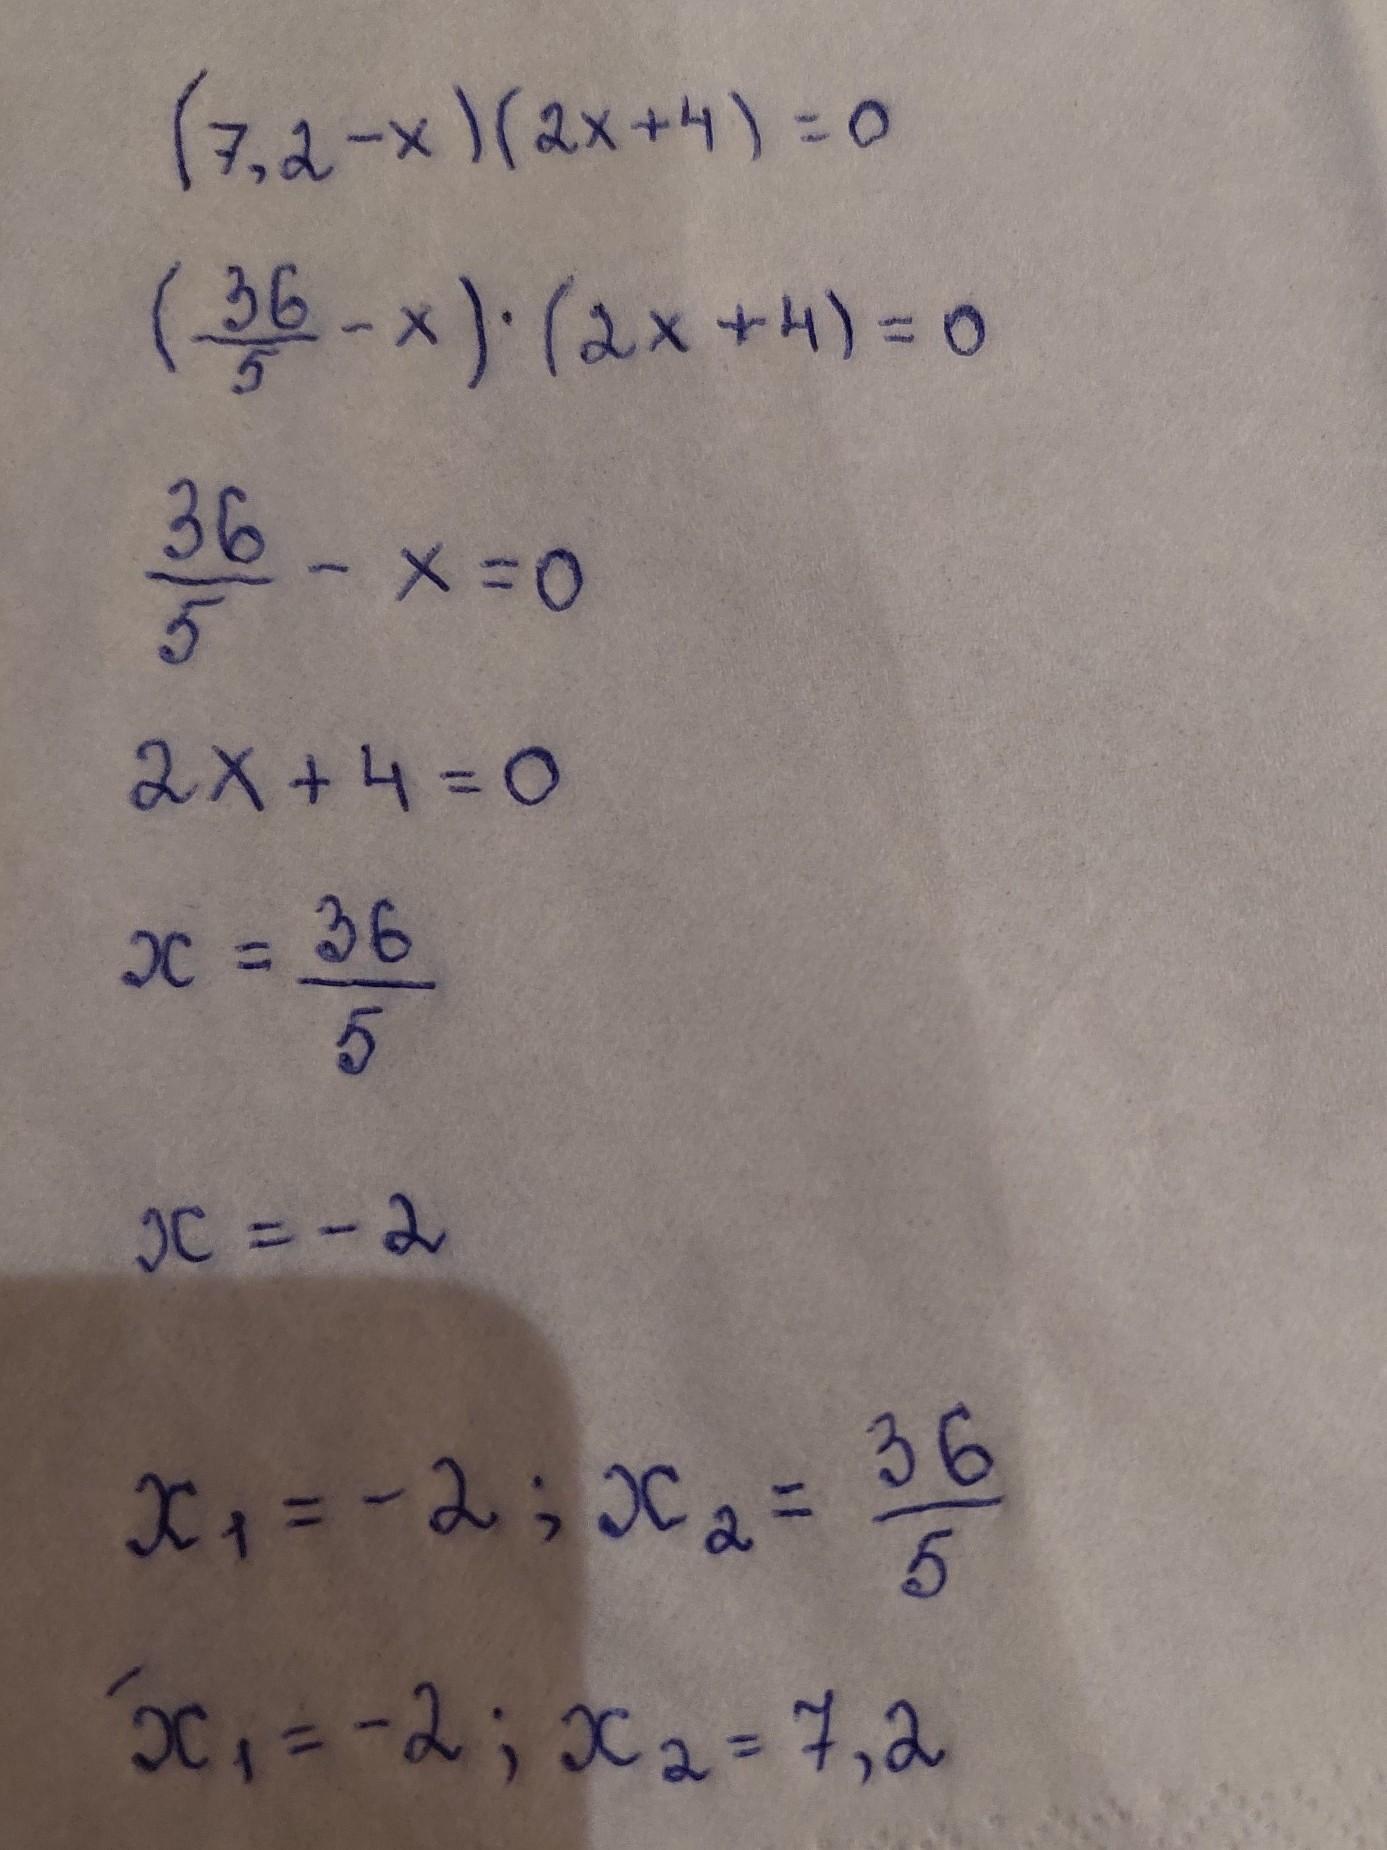 (7,2-x)(2x+4)=0
(36/5-x)·(2x+4)=0
36/5-x=0
2x+4=0
x=36/5
x=-2
x₁=-2; x₂=36/5
x₁=-2; x₂=7,2